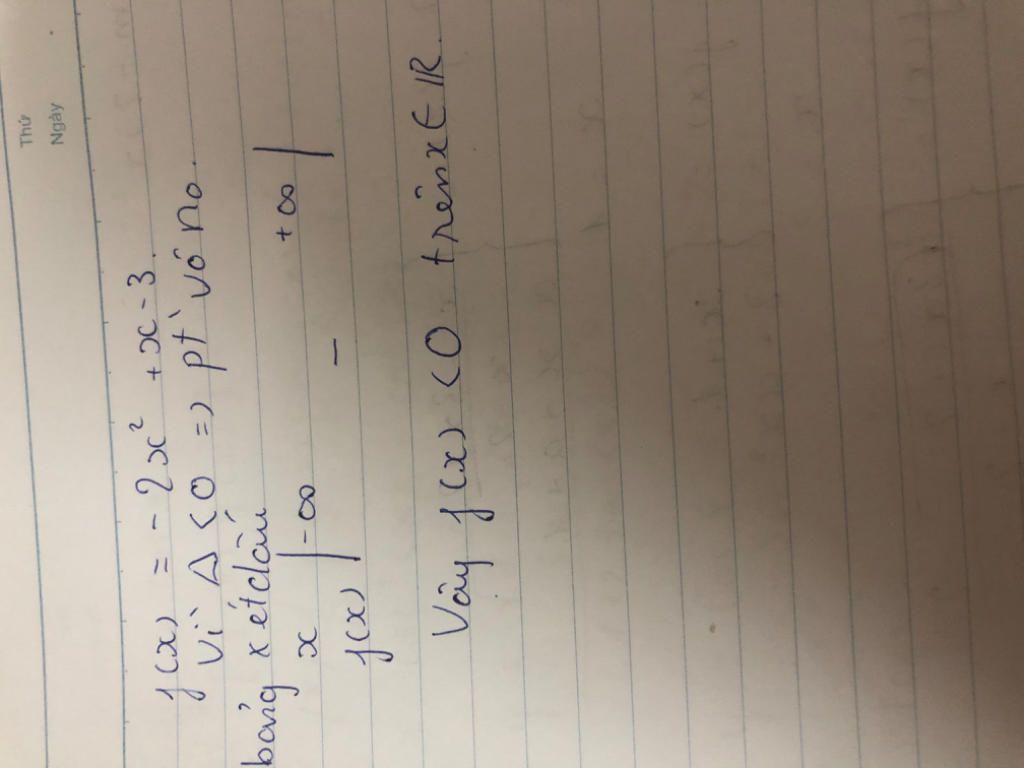 Thứ
Ngày
f(x) = - 2x² + x - 3.
Vì Δ < 0 => pt vô no.
bảng xét dấu
x | -∞ +∞ |
f(x) | - |
Vậy f(x) < 0 trên x ∈ ℝ.